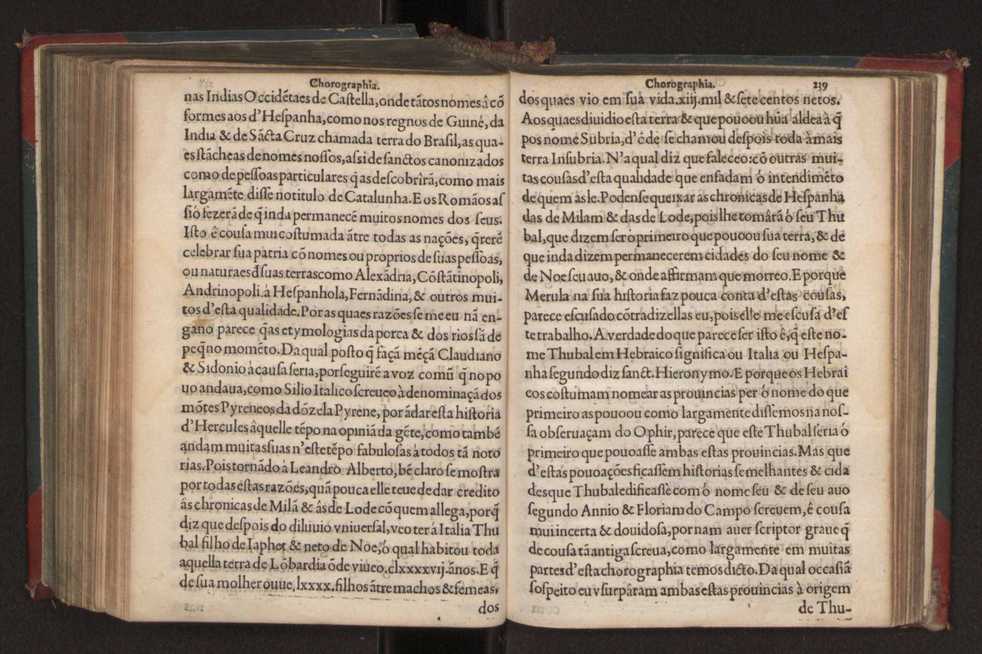 Chorographia.
nas Indias Occidẽtaes de Castella, onde tãtos nomes â cõ
formes aos d'Hespanha, como nos regnos de Guiné, da
India & de Sãcta Cruz chamada terra do Brasil, as qua-
es stã cheas de nomes nossos, assi de sanctos canonizados
como de pessoas particulares q̃ as descobrirã, como mais
largamẽte disse no titulo de Catalunha. E os Romãos as
sio fezerã de q̃ inda permanecẽ muitos nomes dos seus.
Isto é cousa mui costumada ãtre todas as nações, q̃rerẽ
celebrar sua patria cõ nomes ou proprios de suas pessoas,
ou naturaes d̃ suas terras como Alexãdria, Cõstãtinopoli,
Andrinopoli, à Hespanhola, Fernãdina, & outros mui-
tos d'esta qualidade. Por as quaes razões se me eu nã en-
gano parece q̃ as etymologias da porca & dos rios sã de
peq̃no momẽto. Da qual posto q̃ façã mẽçã Claudiano
& Sidonio à causa seria, por seguirẽ a voz comũ q̃ no po
uo andaua, como Silio Italico screueo à denominaçã dos
mõtes Pyreneos da dõzela Pyrene, por ãdar esta historia
d'Hercules âquelle tẽpo na opiniã da gẽte, como tambẽ
andam muitas suas n'este tẽpo fabulosas à todos tã noto
rias. Pois tornãdo à Leandro Alberto, bẽ claro se mostra
por todas estas razões, quã pouca elle teue de dar credito
âs chronicas de Milã & âs de Lode cõ quem allega, porq̃
diz que despois do diluuio vniuersal, veo ter à Italia Thu
bal filho de Iaphet & neto de Noe, ó qual habitou toda
aquella terra de Lõbardia õde viueo. clxxxxvij. ãnos. E q̃
de sua molher ouue, lxxxx. filhos ãtre machos & femeas,
dos
Chorographia. 239
dos quaes vio em sua vida. xiij. mil & sete centos netos.
Aos quaes diuidio esta terra & que pouoou hũa aldea à q̃
pos nome Subria, d'ẽ de se chamou despois toda à mais
terra Insubria. N'a qual diz que faleceo: cõ outras mui-
tas cousas d'esta qualidade que enfadam ó intendimẽto
de quem às le. Podense queixar as chronicas de Hespanha
das de Milam & das de Lode, pois lhe tomârã ó seu Thu
bal, que dizem ser ó primeiro que pouoou sua terra, & de
que inda dizem permanecerem cidades do seu nome &
de Noe seu auo, & onde affirmam que morreo. E porque
Merula na sua historia faz pouca conta d'estas cousas,
parece escusado cõtradizellas eu, pois elle me escusa d'es
te trabalho. A verdade do que parece ser isto é, q̃ este no-
me Thubal em Hebraico significa ou Italia ou Hespa-
nha segundo diz sanct. Hieronymo. E porque os Hebrai
cos costumam nomear as prouincias per ó nome do que
primeiro as pouoou como largamente dissemos na nos-
sa obseruaçam do Ophir, parece que este Thubal seria ó
primeiro que pouoasse ambas estas prouincias. Mas que
d'estas pouoações ficassem historias semelhantes & cida
des que Thubal edificasse com ó nome seu & de seu auo
segundo Annio & Floriam do Campo screuem, é cousa
mui incerta & douidosa, por nam auer scriptor graue q̃
de cousa tã antiga screua, como largamente em muitas
partes d'esta chorographia temos dicto. Da qual occasiã
sospeito eu vsurpâram ambas estas prouincias à origem
de Thu-